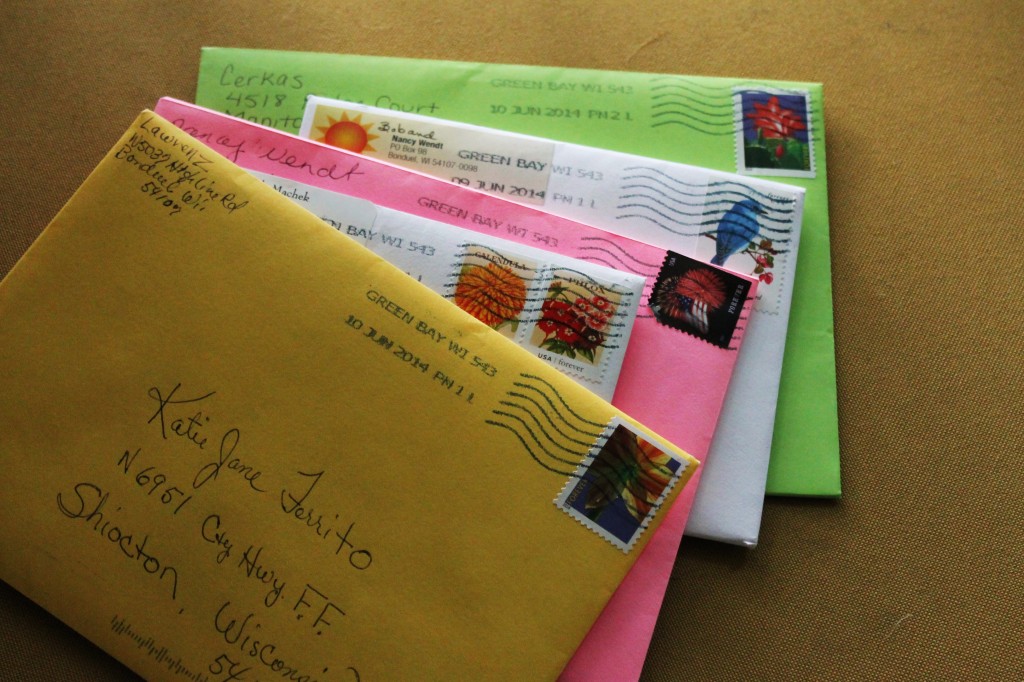 Cerkas
4518 Court
Manito
GREEN BAY WI 543
10 JUN 2014 PM 2 L
Bob and
Nancy Wendt
PO Box 98
Bonduel, WI 54107-0098
GREEN BAY WI 543
09 JUN 2014 PM 1 L
Nancy Wendt
GREEN BAY WI 543
FOREVER
Machek
BAY WI 543
CALENDULA
PHLOX
USA forever
N5039
Bonduel Wi
54107
GREEN BAY WI 543
10 JUN 2014 PM 1 L
Katie Jane Ferrito
N 6951 Cty Hwy. F.F.
Shiocton, Wisconsi
54